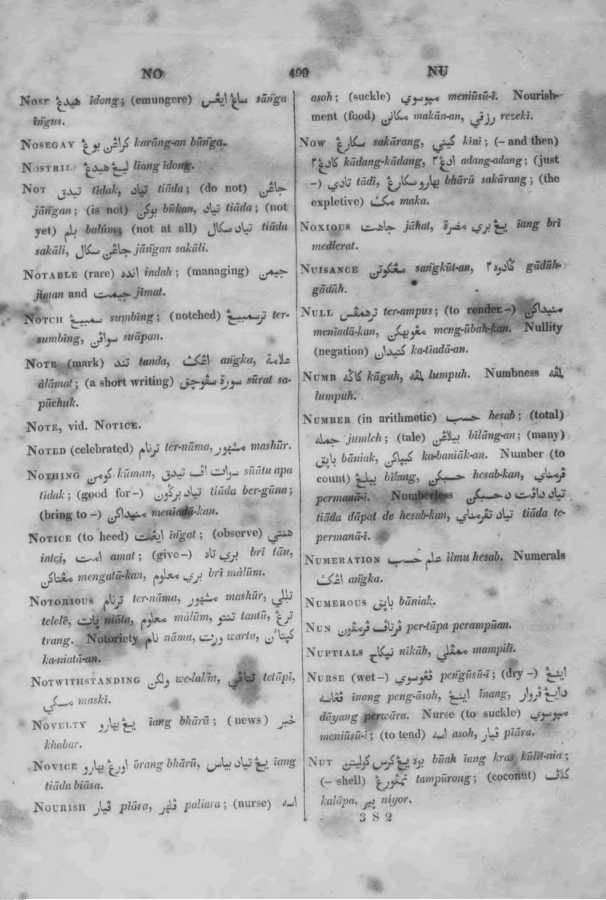 NO 499 NU
NOSE هيدغ idong; (emungere) ساغ ايغس sāṅga
īngus.
NOSEGAY كراڠن بوڠ karāng-an būnga.
NOSTRIL ليڠ هيدڠ liang idong.
NOT تيدق tidak, تياد tiāda; (do not) جاڠن
jāngan; (is not) بوكن būkan, تياد tiāda; (not
yet) بلم balūm; (not at all) تياد سكال tiāda
sakāli, جاڠن سكال jāngan sakāli.
NOTABLE (rare) انده indah; (managing) جيمن
jīman and جيمت jimat.
NOTCH سمبيڠ sumbing; (notched) ترسمبيڠ ter-
sumbing, سواڤن suāpan.
NOTE (mark) تند tanda, اڠك angka, علامة
ălāmat; (a short writing) سورة سڤوچق sūrat sa-
pūchuk.
NOTE, vid. NOTICE.
NOTED (celebrated) ترنام ter-nāma, مشهور mashūr.
NOTHING كومن kūman, سوات اڤ تيدق suātu apa
tidak; (good for-) تياد برگون tiāda ber-gūna;
(bring to -) منيداكن meniadā-kan.
NOTICE (to heed) ايڠت ingat; (observe) هنتي
intei, امت amat; (give-) بري تاو bri tāu,
مڠتاكن mengatā-kan, بري معلوم bri mălūm.
NOTORIOUS ترنام ter-nāma, مشهور mashūr, تللي
telelē, پات niāta, معلوم mălūm, تنتو tantū, ترڠ
trang. Notoriety نام nāma, ورت warta, كپتاءن
ka-niatā-an.
NOTWITHSTANDING ولكن we-lakin, تتاڤي tetāpi,
مسكي maski.
NOVELTY يڠ بهارو iang bhārū; (news) خبر
khabar.
NOVICE اورڠ بهارو ōrang bhārū, يڠ تياد بياس iang
tiāda biāsa.
NOURISH ڤيار piāra, ڤلهر paliara; (nurse) اسه
asoh; (suckle) مپوسوي meniūsū-ī. Nourish-
ment (food) مكانن makān-an, رزقي rezeki.
NOW سكارڠ sakārang, كيني kini; (- and then)
كادڠ٢ kādang-kādang, ادڠ٢ adang-adang; (just
-) تادي tādi, بهارو سكارڠ bhārū sakārang; (the
expletive) مك maka.
NOXIOUS جاهت jāhat, يڠ بري مضرة iang bri
medlerat.
NUISANCE سڠكوتن sangkūt-an, گادوه٢ gādūh-
gādūh.
NULL ترهمڤس ter-ampus; (to render-) منيداكن
meniadā-kan, مڠوبهكن meng-ūbah-kan. Nullity
(negation) كتيدان ka-tiadā-an.
NUMB كاڬه kāguh, لمڤه lumpuh. Numbness لمڤه
lumpuh.
NUMBER (in arithmetic) حسب hesab; (total)
جمله jumleh; (tale) بيلاڠن bilāng-an; (many)
باپق bāniak, كبپاكن ka-baniāk-an. Number (to
count) بيلڠ bilang, حسبكن hesab-kan, ڤرمناي
permanā-ī. Numberless تياد داڤت د حسبكن
tiāda dāpat de hesab-kan, تياد تڤرمناي tiāda te-
permanā-ī.
NUMERATION علم حسب ilmu hesab. Numerals
اڠك angka.
NUMEROUS باپق bāniak.
NUN ڤرتاڤ ڤرمڤون per-tāpa perampūan.
NUPTIALS نيكاح nikāh, ممڤلي mampili.
NURSE (wet-) ڤڠوسوي pengūsū-ī; (dry-) اينڠ
ڤڠاسه inang peng-āsoh, اينڠ inang, دايڠ ڤروار
dāyang perwāra. Nurse (to suckle) مپوسوي
meniūsū-ī; (to tend) اسه asoh, ڤيار piāra.
NUT بوه يڠ كرس كوليتن būah iang kras kūlit-nia;
(- shell) تمڤورڠ tampūrong; (coconut) كلاڤ
kalāpa, نير niyor.
3 S 2